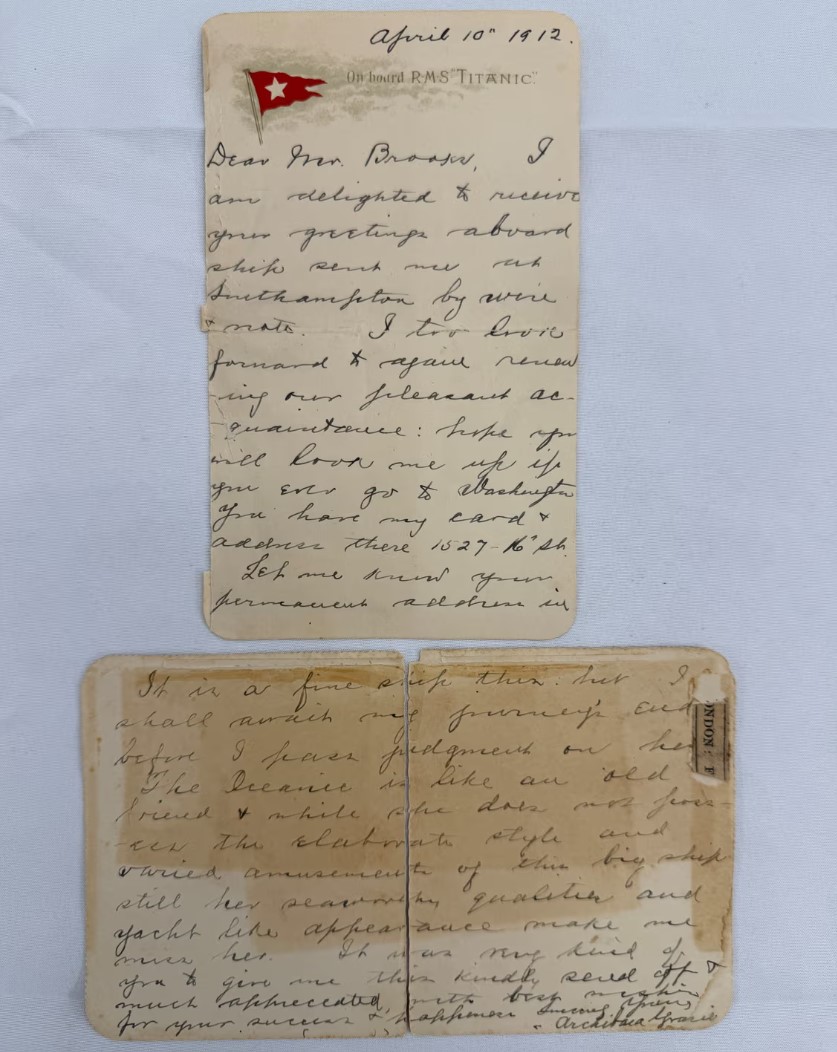 April 10" 1912.
On board RMS "TITANIC."
Dear Mr. Brooks, I
am delighted to receive
your greetings aboard
ship sent me at
Southampton by wire
& note. I too look
forward to again renew
-ing our pleasant ac-
quaintance: hope you
will look me up if
you ever go to Washington
You have my card &
address there 1527-16" St.
Let me know your
permanent address in
It is a fine ship this: but I
shall await my journey's end
before I pass judgment on her
The Oceanic is like an old
friend & while she does not poss-
ess the elaborate style and
varied amusements of this big ship
still her seaworthy qualities and
yacht like appearance make me
miss her. It was very kind of
you to give me this kindly send off &
much appreciated, with best wishes
for your success & happiness Sincerely yours
Archibald Gracie
ONDON: E